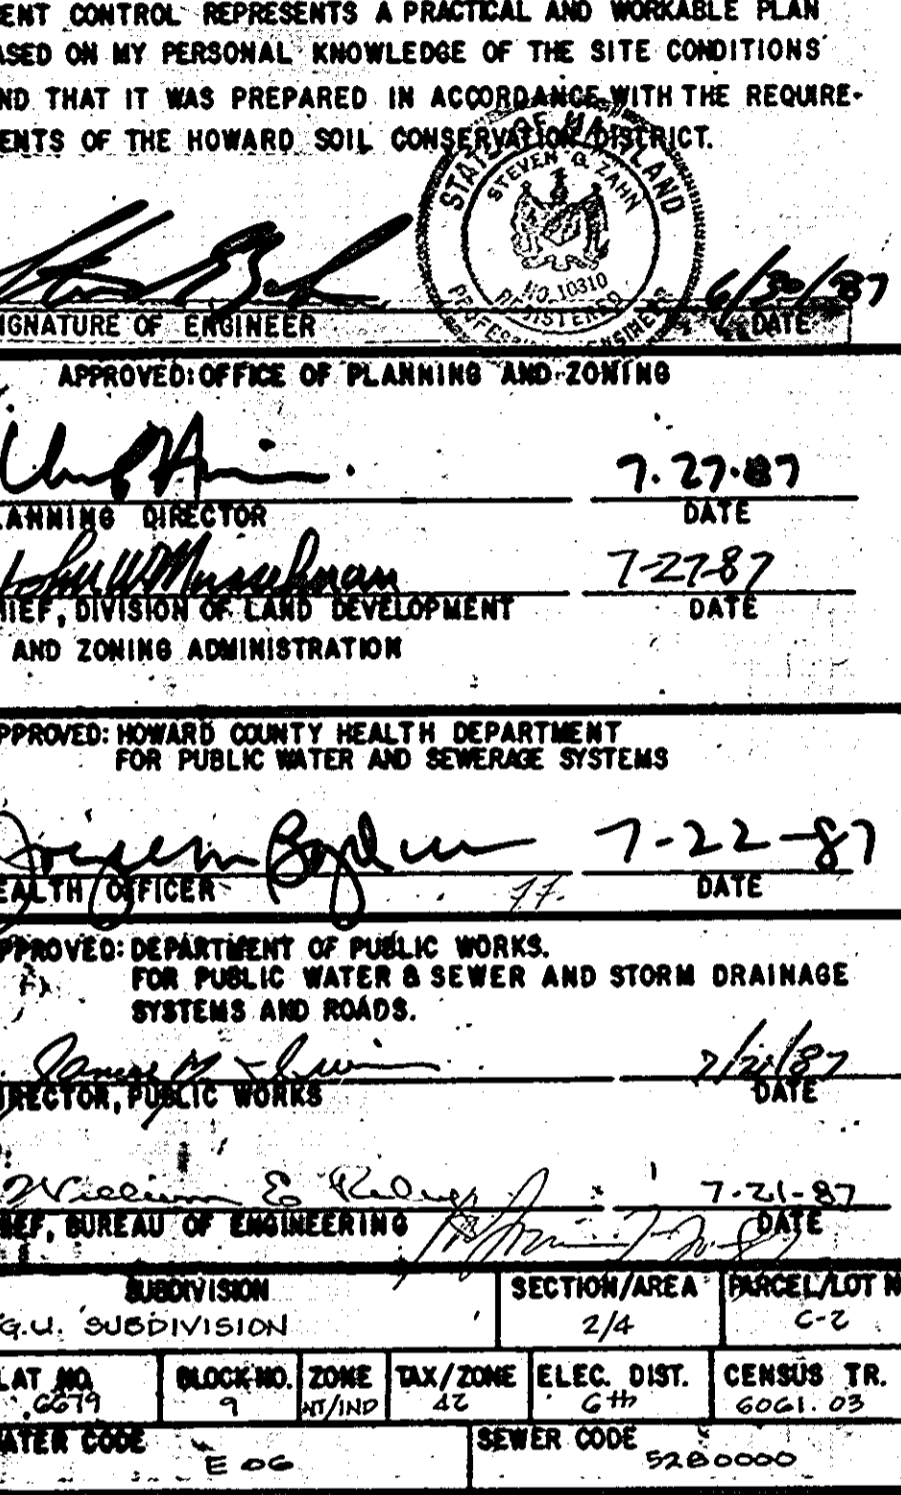 ENT CONTROL REPRESENTS A PRACTICAL AND WORKABLE PLAN
ASED ON MY PERSONAL KNOWLEDGE OF THE SITE CONDITIONS
ND THAT IT WAS PREPARED IN ACCORDANCE WITH THE REQUIRE-
ENTS OF THE HOWARD SOIL CONSERVATION DISTRICT.
STATE OF MARYLAND
STEVEN G. ZAHN
NO. 10310
REGISTERED
PROFESSIONAL ENGINEER
6/30/87
IGNATURE OF ENGINEER DATE
APPROVED: OFFICE OF PLANNING AND ZONING
7.27.87
LANNING DIRECTOR DATE
John W Musselman 7-27-87
HIEF, DIVISION OF LAND DEVELOPMENT DATE
AND ZONING ADMINISTRATION
PPROVED: HOWARD COUNTY HEALTH DEPARTMENT
FOR PUBLIC WATER AND SEWERAGE SYSTEMS
7-22-87
EALTH OFFICER DATE
PPROVED: DEPARTMENT OF PUBLIC WORKS.
FOR PUBLIC WATER & SEWER AND STORM DRAINAGE
SYSTEMS AND ROADS.
James M Irvin
IRECTOR, PUBLIC WORKS DATE
William E 7-21-87
HIEF, BUREAU OF ENGINEERING DATE
SUBDIVISION SECTION/AREA PARCEL/LOT N
G.U. SUBDIVISION 2/4 C-2
LAT NO. BLOCK NO. ZONE TAX/ZONE ELEC. DIST. CENSUS TR.
6679 9 NT/IND 42 6th 6061.03
ATER CODE SEWER CODE
E 06 5280000